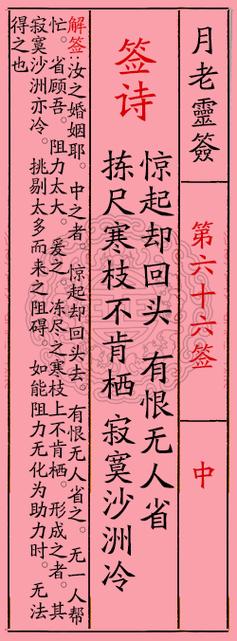 月老靈簽
第六十六签
中
签诗
惊起却回头 有恨无人省
拣尺寒枝不肯栖 寂寞沙洲冷
解签:汝之婚姻耶。中之者。惊起却回头去。有恨无人省之。无一人帮
忙。省顾吾。阻力太大。爱之。冻尽之寒枝上不肯栖。形成之者。其
寂寞沙洲亦冷。挑剔太多而来之阻碍。如能阻力无化为助力时。无法
得之也